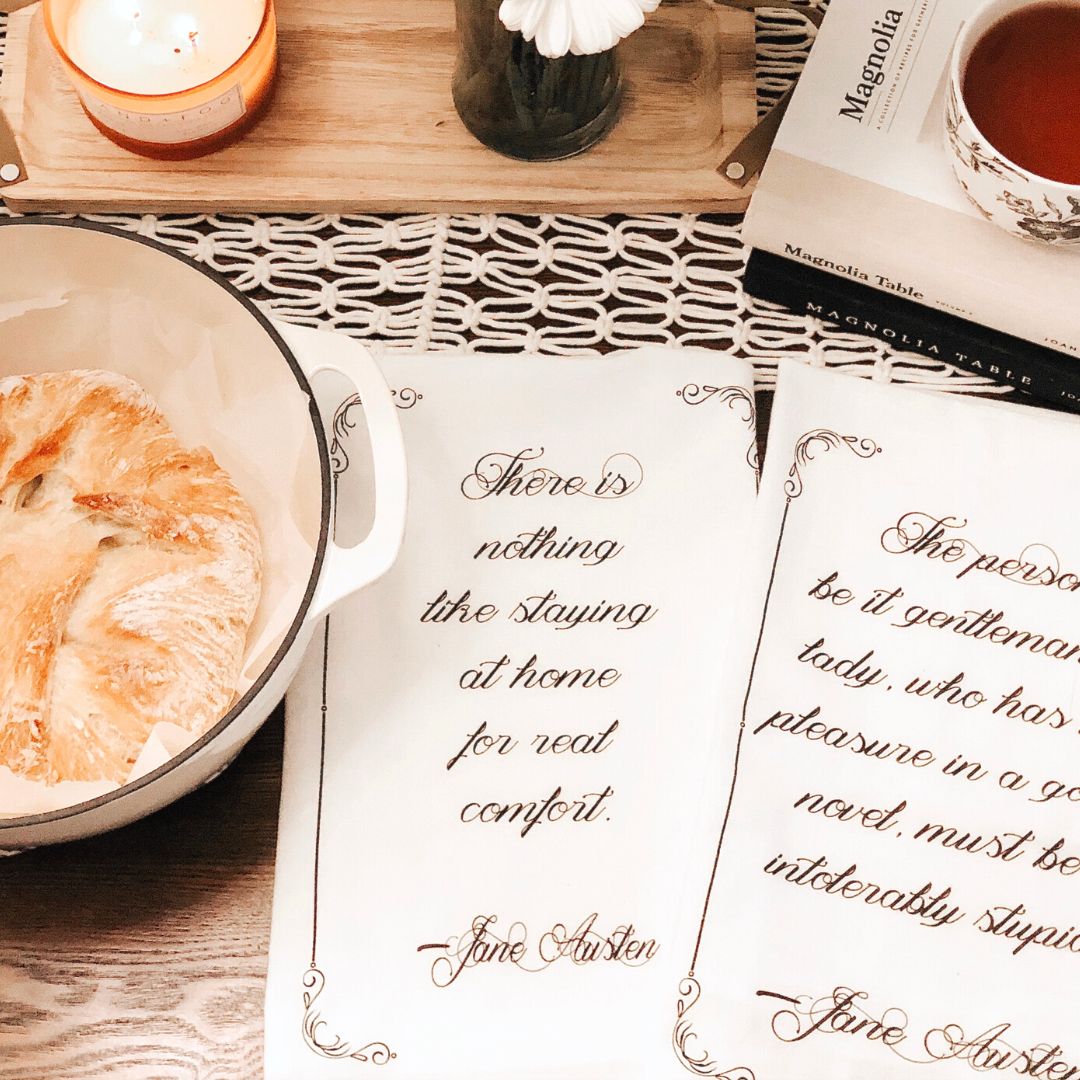 Magnolia
A COLLECTION OF RECIPES FOR
Magnolia Table
MAGNOLIA TABLE
There is
nothing
like staying
at home
for real
comfort.
—Jane Austen
The
be it
lady, who has
pleasure in a
novel, must be
intolerably
—Jane Austen